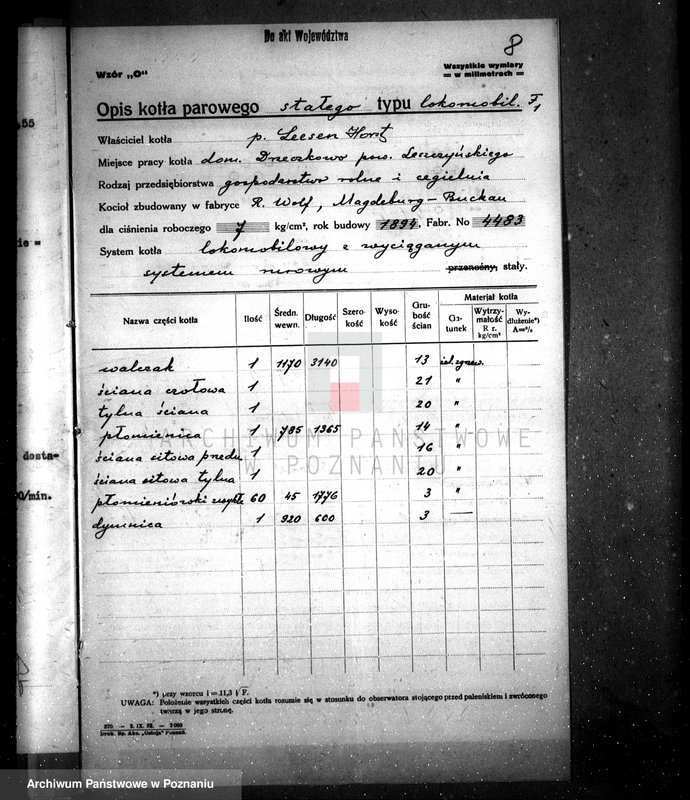 Do akt Województwa
8
Wzór „O"
Wszystkie wymiary
w milimetrach
Opis kotła parowego stałego typu lokomobil. F,
Właściciel kotła p. Leesen Horst
Miejsce pracy kotła dom. Drzeczkowo pow. Leszczyńskiego
Rodzaj przedsiębiorstwa gospodarstwo rolne i cegielnia
Kocioł zbudowany w fabryce R. Wolf, Magdeburg-Buckau
dla ciśnienia roboczego 7 kg/cm², rok budowy 1894, Fabr. No 4483
System kotła lokomobilowy z wyciąganym
systemem rurowym przenośny, stały.
Nazwa części kotła Ilość Średn. wewn. Długość Szerokość Wysokość Grubość ścian Materjał kotła
Gatunek Wytrzymałość R r. kg/cm² Wydłużenie*) A=%
walczak 1 1170 3140 13
ściana czołowa 1 21 "
tylna ściana 1 20 "
płomienica 1 785 1365 14 "
ściana sitowa przedn. 1 16 "
ściana sitowa tylna 1 20 "
płomieniówki 60 45 1776 3 "
dymnica 1 920 600 3 —
ARCHIWUM PAŃSTWOWE
W POZNANIU
55
ie =
dosta-
0/min.
*) przy wzorcu l = 11,3 √F.
UWAGA: Położenie wszystkich części kotła rozumie się w stosunku do obserwatora stojącego przed paleniskiem i zwróconego
twarzą w jego stronę.
570 — 5. IX. 32. — 2 000
Druk. Sp. Akc. „Ostoja" Poznań.
Archiwum Państwowe w Poznaniu